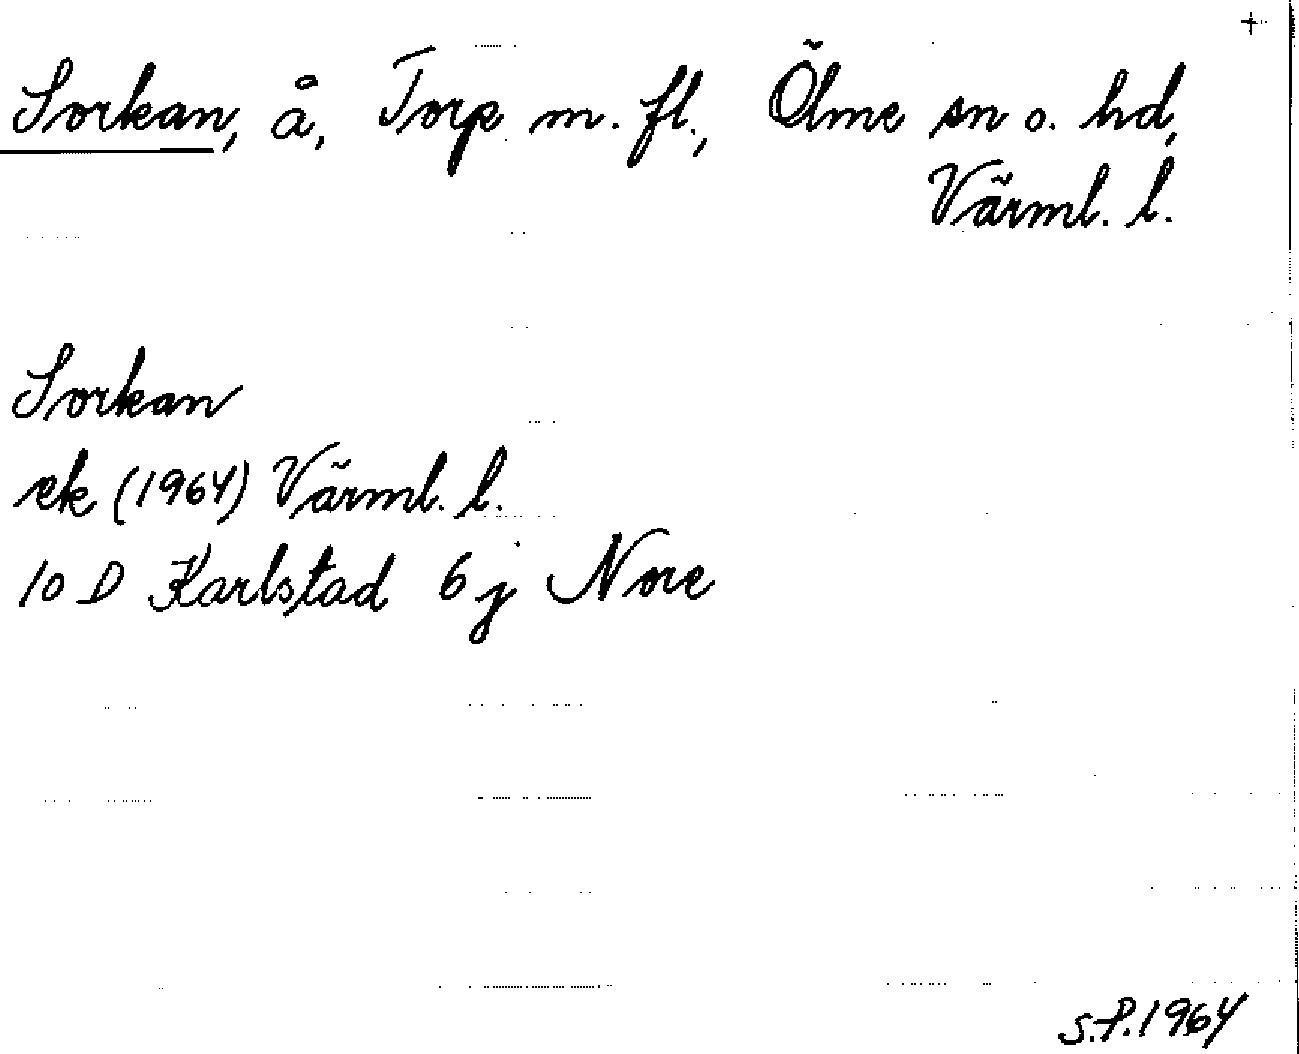 +
Sorkan, å, Torp m. fl., Ölme sn o. hd,
Värml. l.
Sorkan
ek (1964) Värml. l.
10 D Karlstad 6 j Nore
S.P. 1964